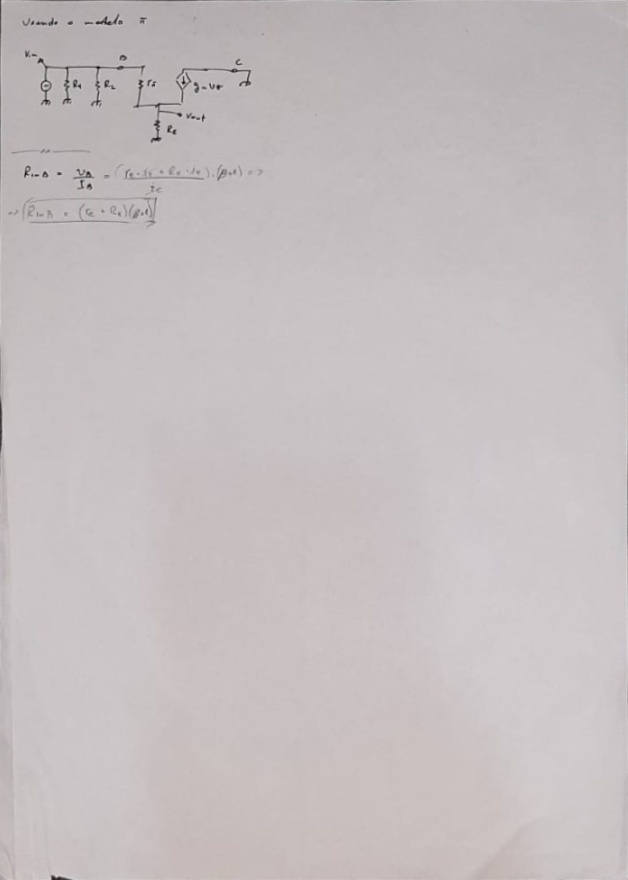 Usando o modelo π
Vin B C
R1 R2 rπ gmVπ
Vout
RE
RinB = VB/IB = (re·ie + RE·ie)·(β+1)/ie =>
=> RinB = (re + RE)(β+1)